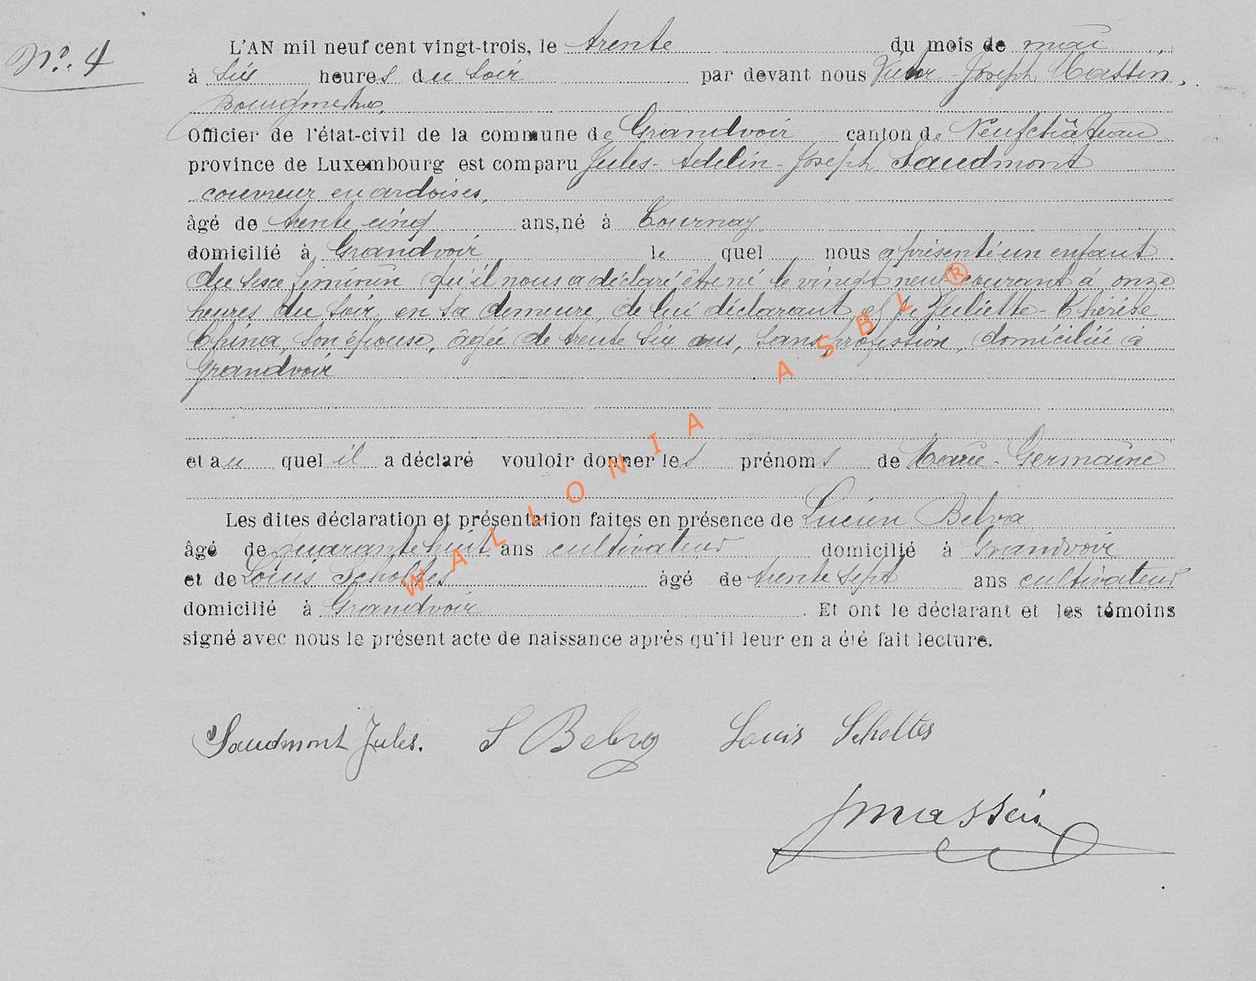 N°. 4
L'AN mil neuf cent vingt-trois, le trente du mois de mai
à six heures du soir par devant nous Victor-Joseph Massin,
Bourgmestre,
Officier de l'état-civil de la commune de Grandvoir canton de Neufchâteau
province de Luxembourg est comparu Jules-Adelin-Joseph Saudmont
couvreur en ardoises,
âgé de trente cinq ans, né à Tournay
domicilié à Grandvoir le quel nous a présenté un enfant
du sexe féminin qu'il nous a déclaré être né le vingt neuf courant à onze
heures du soir, en sa demeure, de lui déclarant et de Juliette-Thérèse
China, son épouse, âgée de trente six ans, sans profession, domiciliée à
Grandvoir
et au quel il a déclaré vouloir donner les prénoms de Marie-Germaine
Les dites déclaration et présentation faites en présence de Lucien Belva
âgé de quarante huit ans cultivateur domicilié à Grandvoir
et de Louis Scholtes âgé de trente sept ans cultivateur
domicilié à Grandvoir . Et ont le déclarant et les témoins
signé avec nous le présent acte de naissance après qu'il leur en a été fait lecture.
Saudmont Jules. Belva Louis Scholtes
Massin
WALLONIA ASBL®